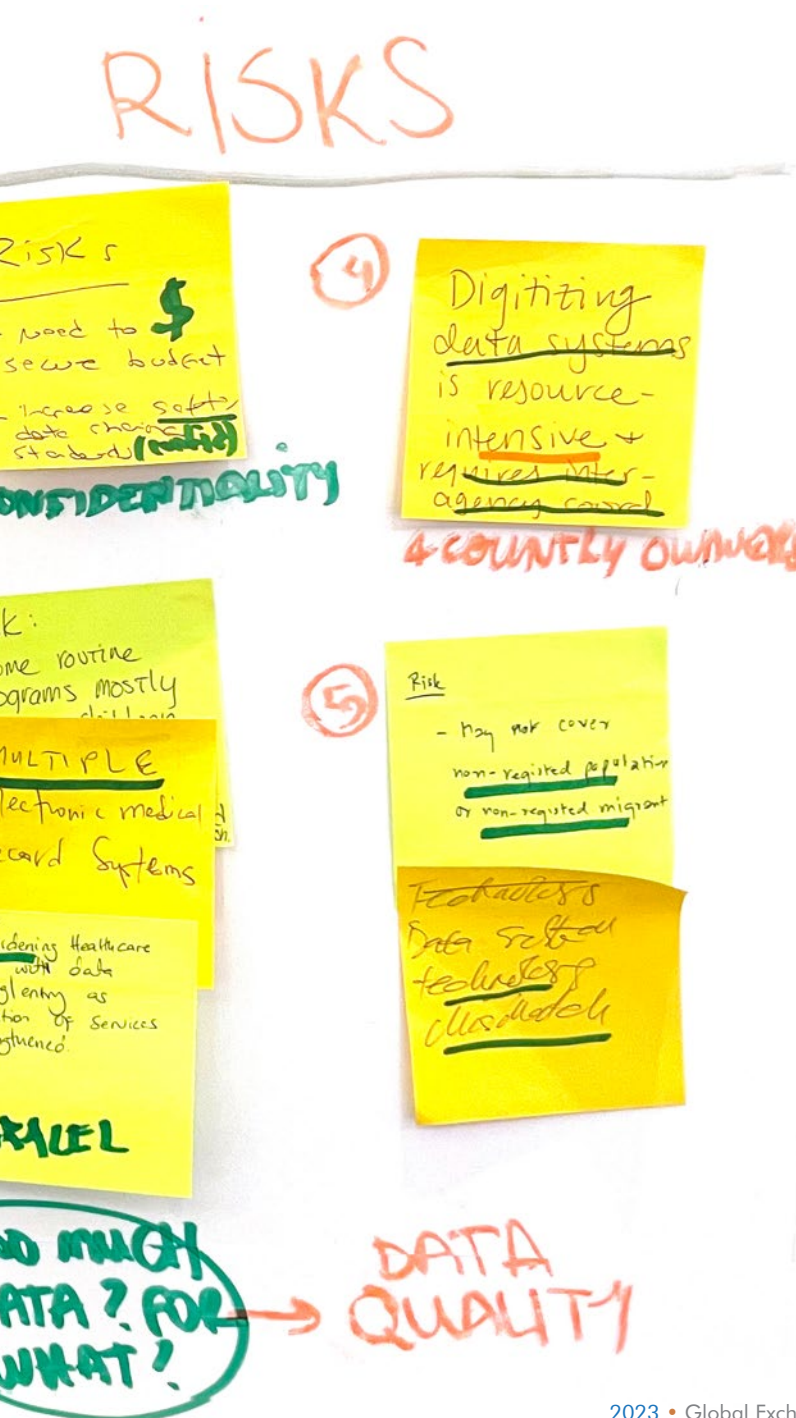 RISKS
Risks
need to $
secure budget
- Increase
data sharing
standards
ONFIDENTIALITY
4
Digitizing
data systems
is resource-
intensive +
requires inter-
agency coord
& COUNTRY OWNER
k:
ome routine
ograms mostly
MULTIPLE
lectronic medical
ecord Systems
idening Healthcare
with data
entry as
tion of Services
ALLEL
OO MUCH
ATA? FOR
WHAT?
5
Risk
- May not cover
non-registed population
or non-registed migrant
Data
technology
DATA
QUALITY
2023 • Global Exch